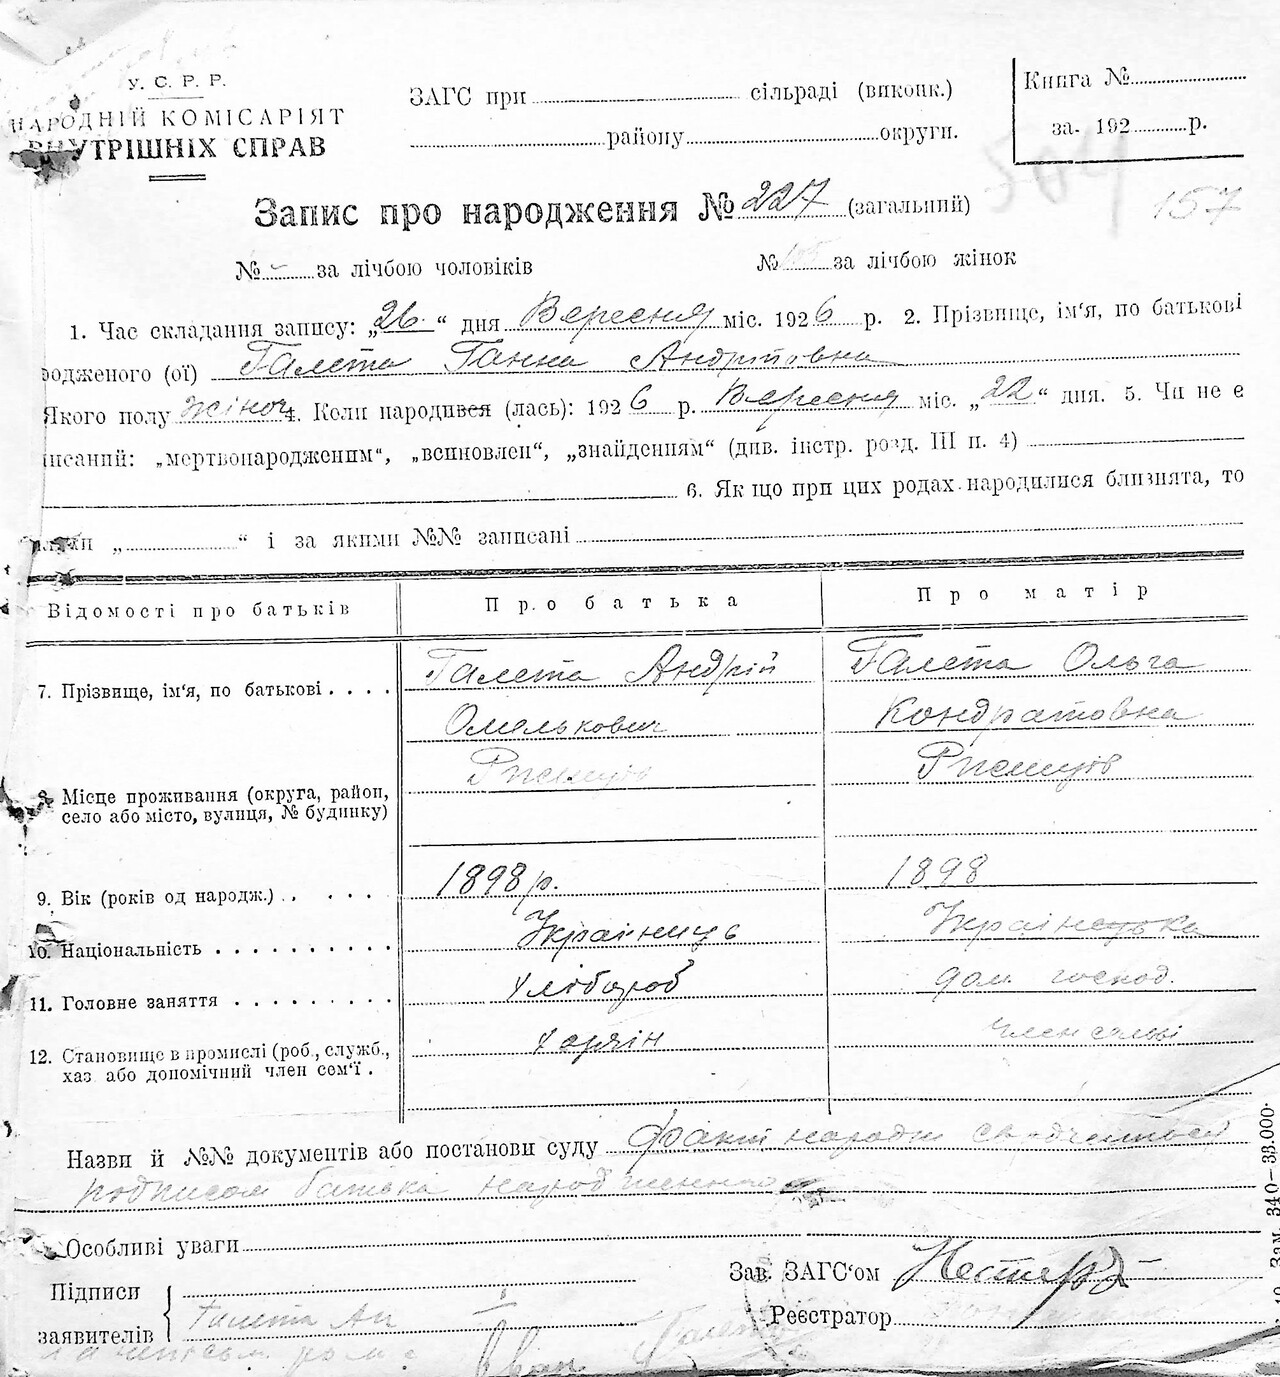 У. С. Р. Р.
НАРОДНІЙ КОМІСАРІЯТ
ВНУТРІШНІХ СПРАВ
ЗАГС при сільраді (виконк.)
району округи.
Книга №
за 192 р.
Запис про народження № 227 (загальний)
157
№ - за лічбою чоловіків № за лічбою жінок
1. Час складання запису: „26“ дня Вересня міс. 1926 р. 2. Прізвище, ім'я, по батькові
родженого (ої) Галета Ганна Андріївна
Якого полу жіноч 4. Коли народився (лась): 1926 р. Вересня міс. „22“ дня. 5. Чи не є
писаний: „мертвонародженим“, „всиновлен“, „знайденим“ (див. інстр. розд. III п. 4)
6. Як що при цих родах народилися близнята, то
„ “ і за якими №№ записані
Відомості про батьків Про батька Про матір
7. Прізвище, ім'я, по батькові Галета Андрій Галета Ольга
Омелькович Кондратовна
8. Місце проживання (округа, район, село або місто, вулиця, № будинку)
9. Вік (років од народж.) 1898 р. 1898
10. Національність Українець Українка
11. Головне заняття Хлібороб дом. господ.
12. Становище в промислі (роб., служб., хаз або допомічний член сем'ї. Хазяін член семї
Назви й №№ документів або постанови суду Факт народж
подписом батька
Особливі уваги
Підписи
заявителів Галета Ан
Зав. ЗАГС'ом
Реєстратор
Зам. 340—33.000.